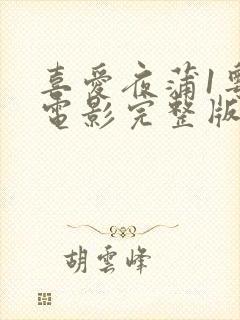 喜愛夜蒲1粵
電影完整版
胡雲峰